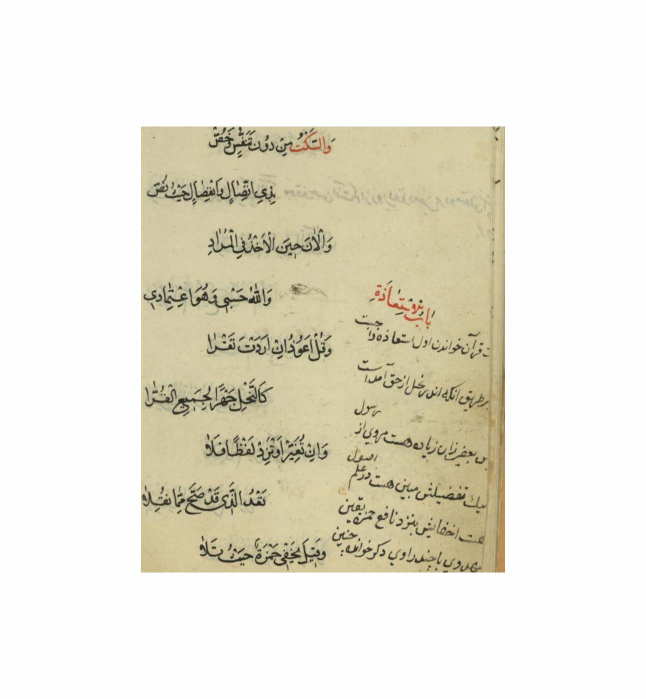 والسكت من دون تنفس وخص
بذي اتصال وانفصال حيث نص
والآن حين الأخذ في المراد
والله حسبي وهو اعتمادي
باب استعاذة
وقل أعوذ إن أردت تقرا
كالنحل جهرا لجميع القرا
وإن تغير أو تزد لفظا فلا
تعد الذي قد صح مما نقلا
وقيل يخفي حمزة حيث تلا
قرآن خواندن اول استعاذه واجبست
بر طریق آنکه اندر نحل از حق آمداست
بعضی زان زیاده هست مروی از رسول
لیك تفصیلش مبین هست در علم اصول
هست اخفایش بنزد نافع حمزه یقین
مهدوی با چند راوی دکر خوانده چنین